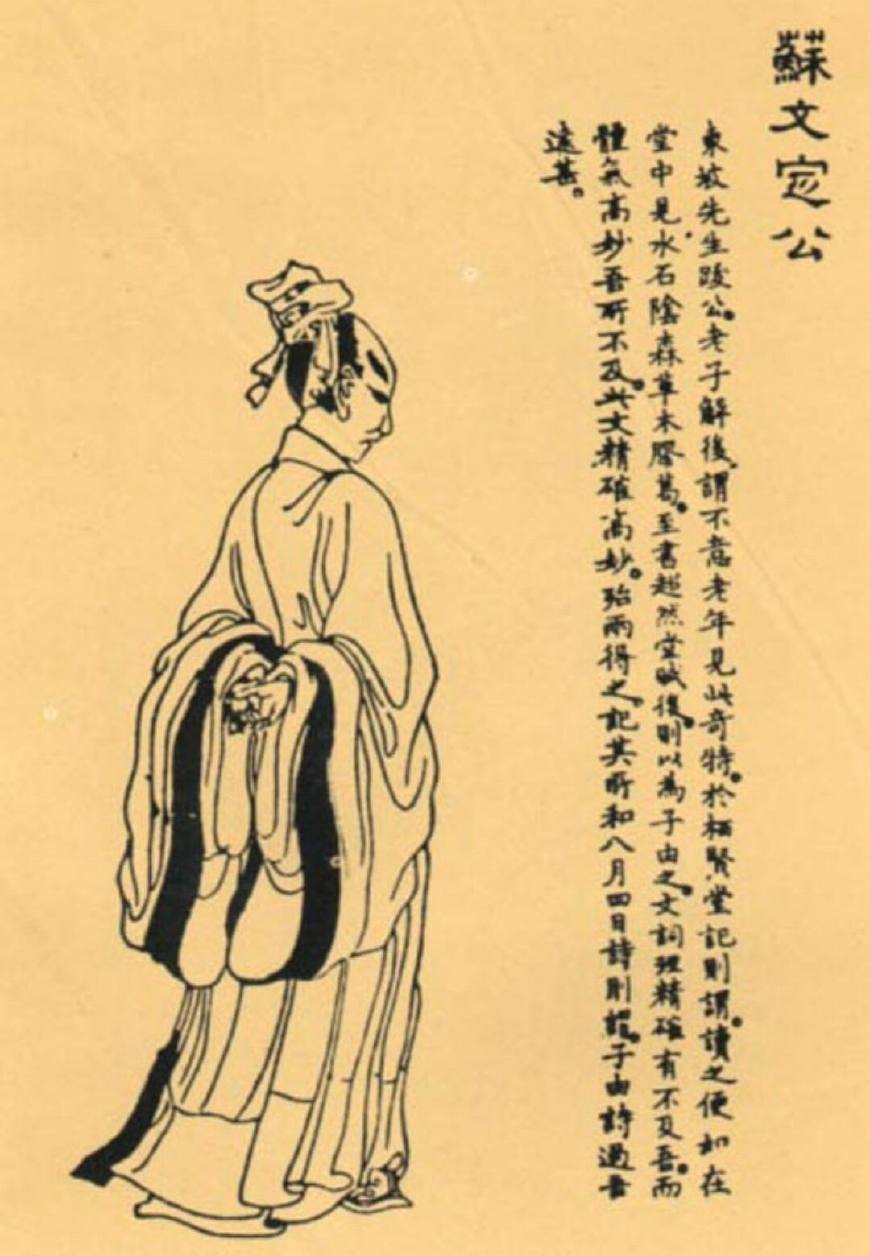 蘇文定公
東坡先生跋公。老子解後。謂不意老年見此奇特。於栖賢堂記則謂。讀之便如在
堂中見水石陰森草木膠葛。至書超然堂賦後。則以為子由之。文詞理精確有不及吾。而
體氣高妙吾所不及。此文精確高妙。殆兩得之。記其所和八月四日詩則謂。子由詩過吾
遠甚。